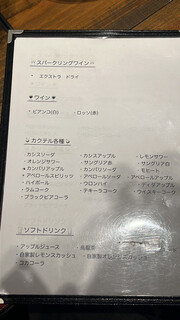 スパークリングワイン
・ エクストラ ドライ
♥ワイン♥
・ビアンコ(白) ・ロッソ(赤)
カクテル各種
・カシスソーダ ・カシスアップル ・レモンサワー
・オレンジサワー ・サングリア赤 ・サングリア白
・カンパリアップル ・カンパリソーダ ・モヒート
・アペロールスピリッツ ・アペロールアップル ・アペロールソーダ
・ハイボール ・ウロンハイ ・ジデッグアップル
・ラムコーク ・テキーラコーク ウイスキーコーク
・ブラックビアコーラ
ソフトドリンク
・アップルジュース ・烏龍茶
・自家製レモンスカッシュ ・自家製オレ
・コカコーラ